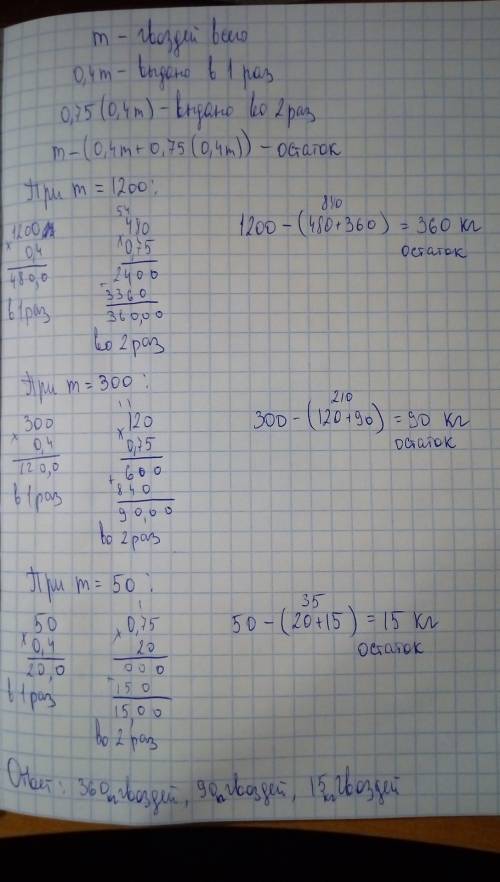 m - гвоздей всего
0,4m - выдано в 1 раз
0,75(0,4m) - выдано во 2 раз
m-(0,4m+0,75(0,4m)) - остаток
При m = 1200:
1200
× 0,4
480,0
в 1 раз
54
480
× 0,75
2400
3360
360,00
во 2 раз
840
1200 - (480+360) = 360 кг
остаток
При m = 300:
300
× 0,4
120,0
в 1 раз
11
120
× 0,75
+ 600
840
90,00
во 2 раз
210
300 - (120+90) = 90 кг
остаток
При m = 50:
50
× 0,4
20,0
в 1 раз
1
0,75
× 20
000
150
15,00
во 2 раз
35
50 - (20+15) = 15 кг
остаток
Ответ: 360 кг гвоздей, 90 кг гвоздей, 15 кг гвоздей